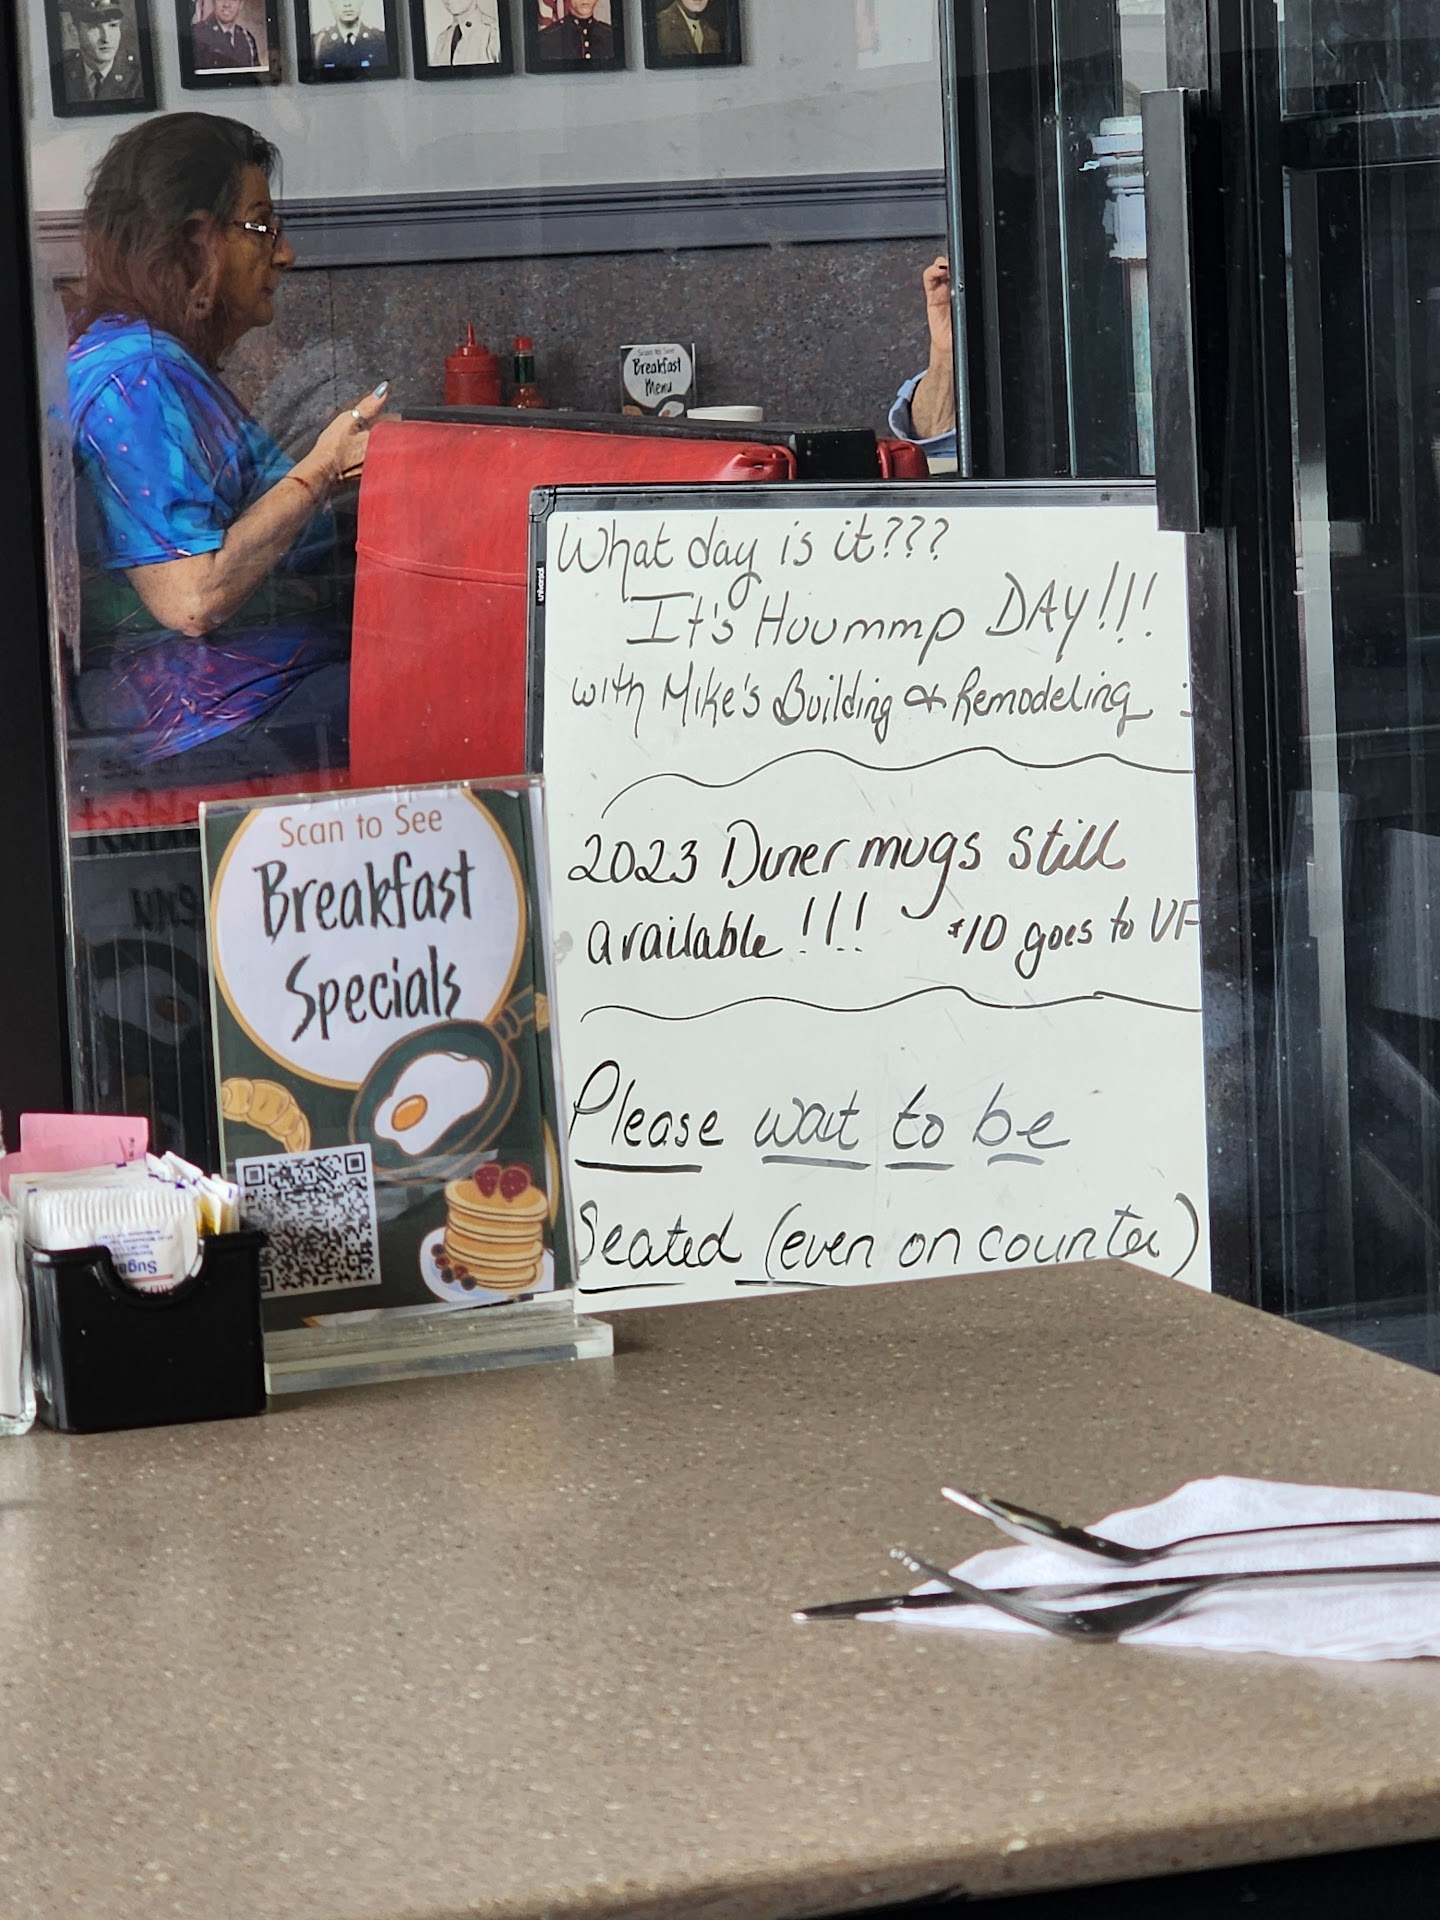 Scan to See
Breakfast
Menu
What day is it???
It's Huummp DAY!!!
with Mike's Building & Remodeling
2023 Diner mugs still
available!!! $10 goes to VF
Please wait to be
Seated (even on counter)
universal
Scan to See
Breakfast
Specials
Sugar